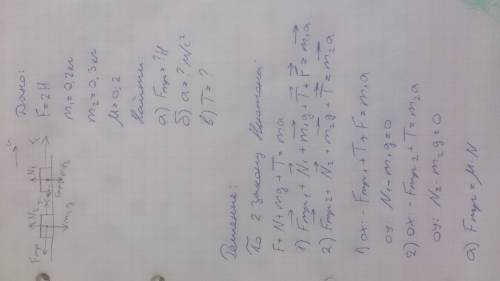 Дано:
F = 2Н
m₁ = 0,2кг
m₂ = 0,3кг
μ = 0,2
Найти:
а) Fтр = ? Н
б) a = ? м/с²
в) T = ?
Решение:
По 2 закону Ньютона:
F + N + mg + T = ma
1) Fтр1 + N₁ + m₁g + T + F = m₁a
2) Fтр2 + N₂ + m₂g + T = m₂a
1) ox: - Fтр1 + T + F = m₁a
oy: N₁ - m₁g = 0
2) ox: - Fтр2 + T = m₂a
oy: N₂ - m₂g = 0
а) Fтр = μ · N